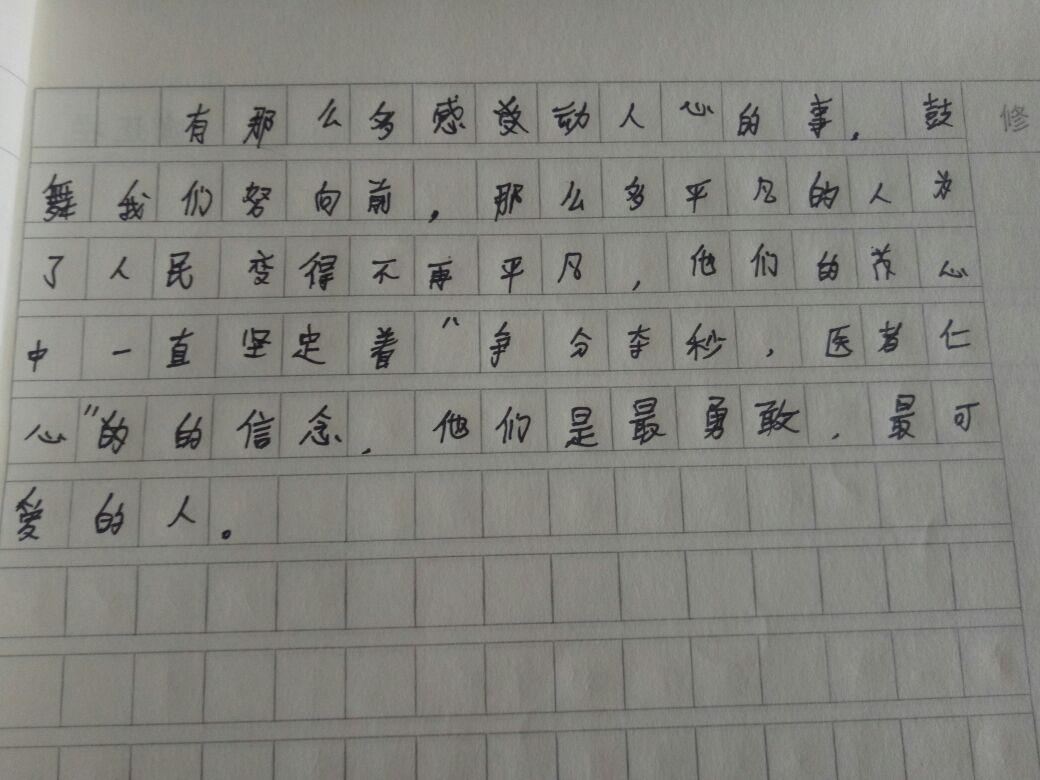 有那么多感受动人心的事，鼓修
舞我们努向前，那么多平凡的人为
了人民变得不再平凡，他们的心
中一直坚定着“争分夺秒，医者仁
心”的的信念，他们是最勇敢，最可
爱的人。